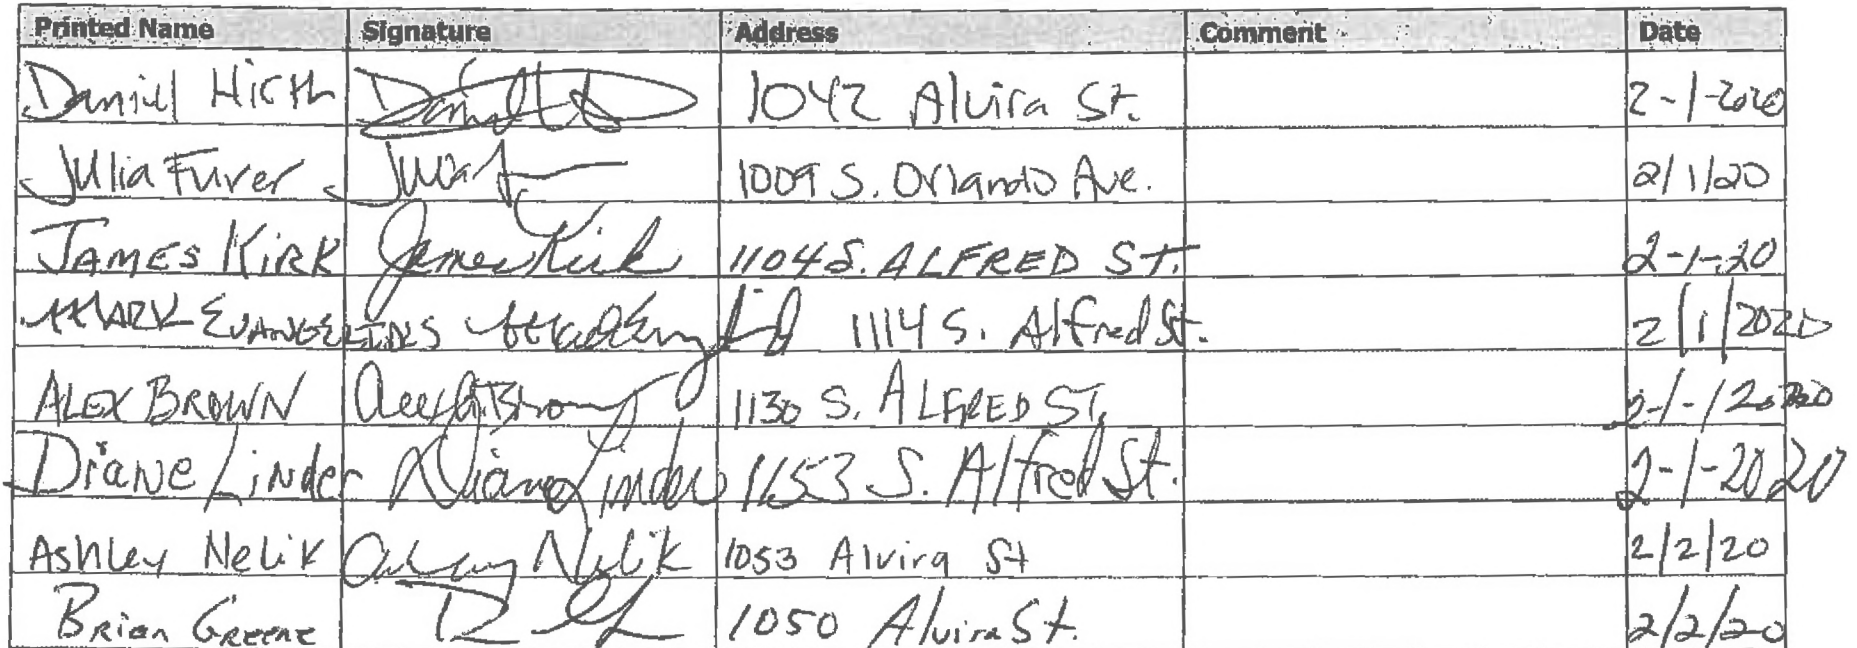 Printed Name Signature Address Comment Date
Daniel Hirth 1042 Alvira St. 2-1-2020
Julia Furer Julia F 1009 S. Orlando Ave. 2/1/20
JAMES KIRK James Kirk 1104 S. ALFRED ST. 2-1-20
MARK EVANGELINS 1114 S. Alfred St. 2/1/2020
ALEX BROWN 1130 S. ALFRED ST. 2-1-2020
Diane Linder Diane Linder 1153 S. Alfred St. 2-1-2020
Ashley Nelik Ashley Nelik 1053 Alvira St 2/2/20
Brian Greene 1050 Alvira St. 2/2/20